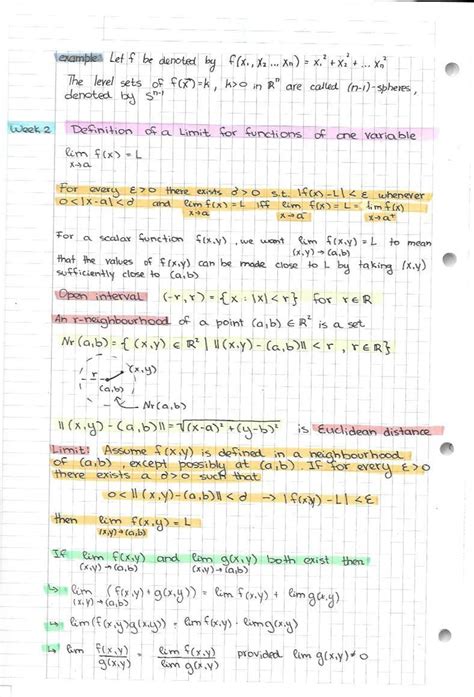 example: Let f be denoted by f(x₁, x₂ ... xₙ) = x₁² + x₂² + ... xₙ²
The level sets of f(x⃗)=k, k>0 in ℝⁿ are called (n-1)-spheres,
denoted by Sⁿ⁻¹
Week 2 Definition of a Limit for functions of one variable
lim f(x) = L
x→a
For every ε>0 there exists d>0 s.t. |f(x)-L|<ε whenever
0<|x-a|<d and lim f(x) = L iff lim f(x) = L = lim f(x)
x→a x→a⁻ x→a⁺
For a scalar function f(x,y), we want lim f(x,y) = L to mean
(x,y)→(a,b)
that the values of f(x,y) can be made close to L by taking (x,y)
sufficiently close to (a,b)
Open interval (-r,r) = {x : |x| < r} for r∈ℝ
An r-neighbourhood of a point (a,b) ∈ ℝ² is a set
Nr(a,b) = { (x,y) ∈ ℝ² | ||(x,y) - (a,b)|| < r , r∈ℝ}
r (x,y)
(a,b)
Nr(a,b)
||(x,y) - (a,b)|| = √(x-a)² + (y-b)² is Euclidean distance
Limit: Assume f(x,y) is defined in a neighbourhood
of (a,b), except possibly at (a,b). If for every ε>0
there exists a d>0 such that
0<||(x,y)-(a,b)||<d → |f(x,y)-L|<ε
then lim f(x,y) = L
(x,y)→(a,b)
If lim f(x,y) and lim g(x,y) both exist then
(x,y)→(a,b) (x,y)→(a,b)
↳ lim (f(x,y) + g(x,y)) = lim f(x,y) + lim g(x,y)
(x,y)→(a,b)
↳ lim(f(x,y)g(x,y)) = lim f(x,y) · lim g(x,y)
↳ lim f(x,y) = lim f(x,y) provided lim g(x,y) ≠ 0
g(x,y) lim g(x,y)